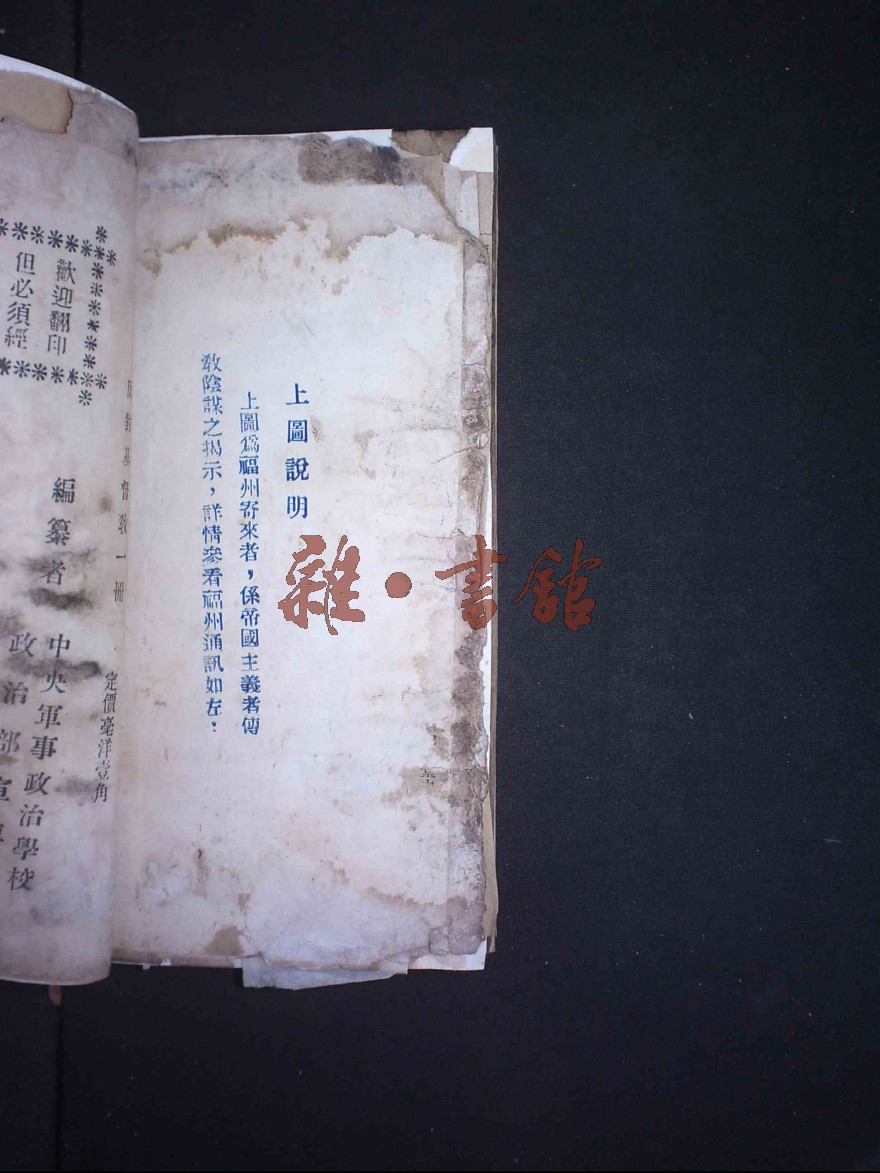 上圖說明
上圖爲福州寄來者，係帝國主義者傳
敎陰謀之揭示，詳情參看福州通訊如左：
反對基督敎一册
定價毫洋壹角
歡迎翻印
但必須經
編纂者
中央軍事政治學校
政治部宣
雜·書館